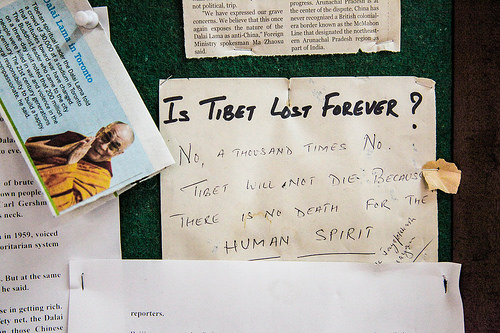 not political, trip.
"We have expressed our grave
concerns. We believe that this once
again exposes the nature of the
Dalai Lama as anti-China," Foreign
Ministry spokesman Ma Zhaoxu
said.
progress. Arunachal Pradesh is at
the center of the dispute. China has
never recognized a British colonial-
era border known as the McMahon
Line that designated the northeast-
ern Arunachal Pradesh region as
part of India.
Dalai Lama in Toronto
IS TIBET LOST FOREVER ?
NO, A THOUSAND TIMES NO.
TIBET WILL NOT DIE BECAUS
THERE IS NO DEATH FOR THE
HUMAN SPIRIT
of brute
own people
Carl Gershm
neck.
in 1959, voiced
oritarian system
. But at the same
he said.
se in getting rich.
ety net, the Dalai
those Chinese
reporters.